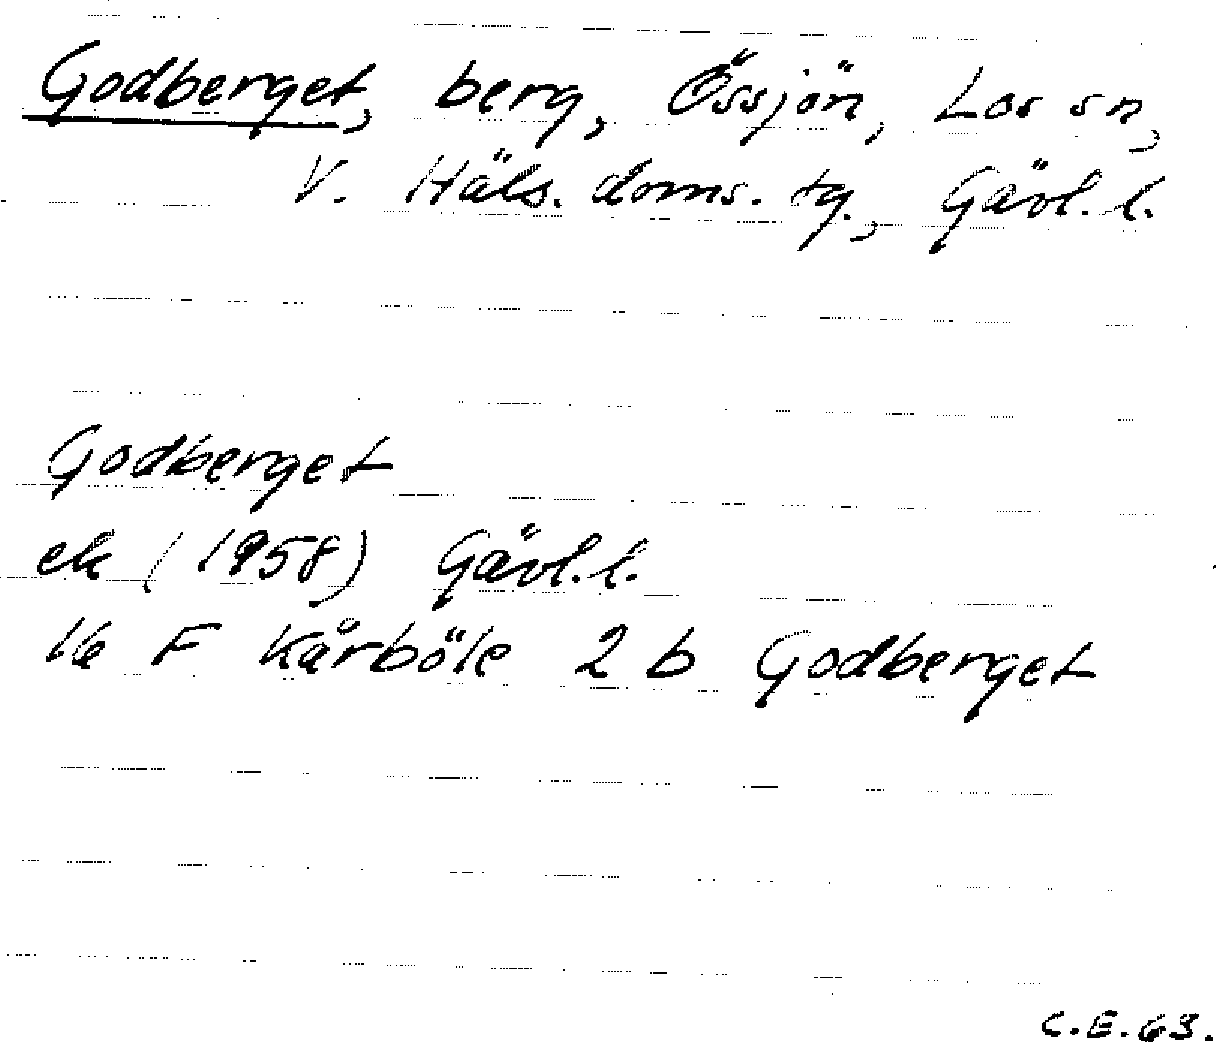 Godberget, berg, Össjön, Los sn,
V. Häls. doms. tg., Gävl. l.
Godberget
ek (1958) Gävl. l.
16 F Kårböle 2 b Godberget
C.E. 63.